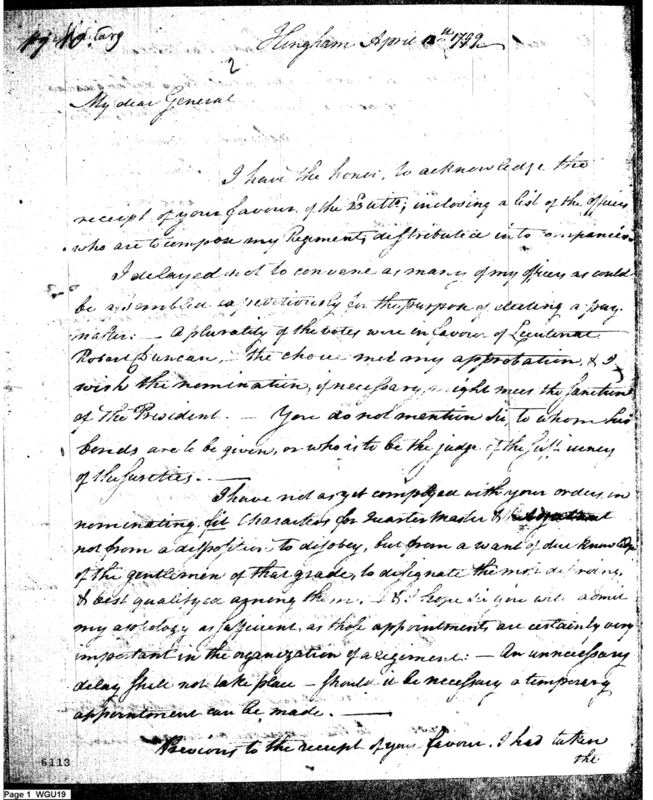 Hingham April 1799
2
My dear General
I have the honor, to acknowledge the
receipt of your favour of the inclosing a list of the officers
who are to compose my Regiment, distributed into companies.
I delayed not to convene as many of my officers as could
be assembled expeditiously for the purpose of electing a pay
master: — A plurality of the votes were in favour of Lieutenant
Robert Duncan, — the choice met my approbation, & I
wish the nomination, if necessary, might meet the sanction
of The President. — You do not mention Sir, to whom his
bonds are to be given, or who is to be the judge of the sufficiency
of the sureties. —
I have not as yet complyed with your orders, in
nominating fit Characters for Quarter Master &
not from a disposition to disobey, but from a want of due knowledge
of the gentlemen of that grade, to designate the most deserving,
& best qualifyed among them. — & I hope Sir you will admit
my apology as sufficient, as those appointments are certainly very
important in the organization of a regiment: — An unnecessary
delay shall not take place — should it be necessary a temporary
appointment can be made. —
Previous to the receipt of your favour, I had taken
the
6113
Page 1 WGU19